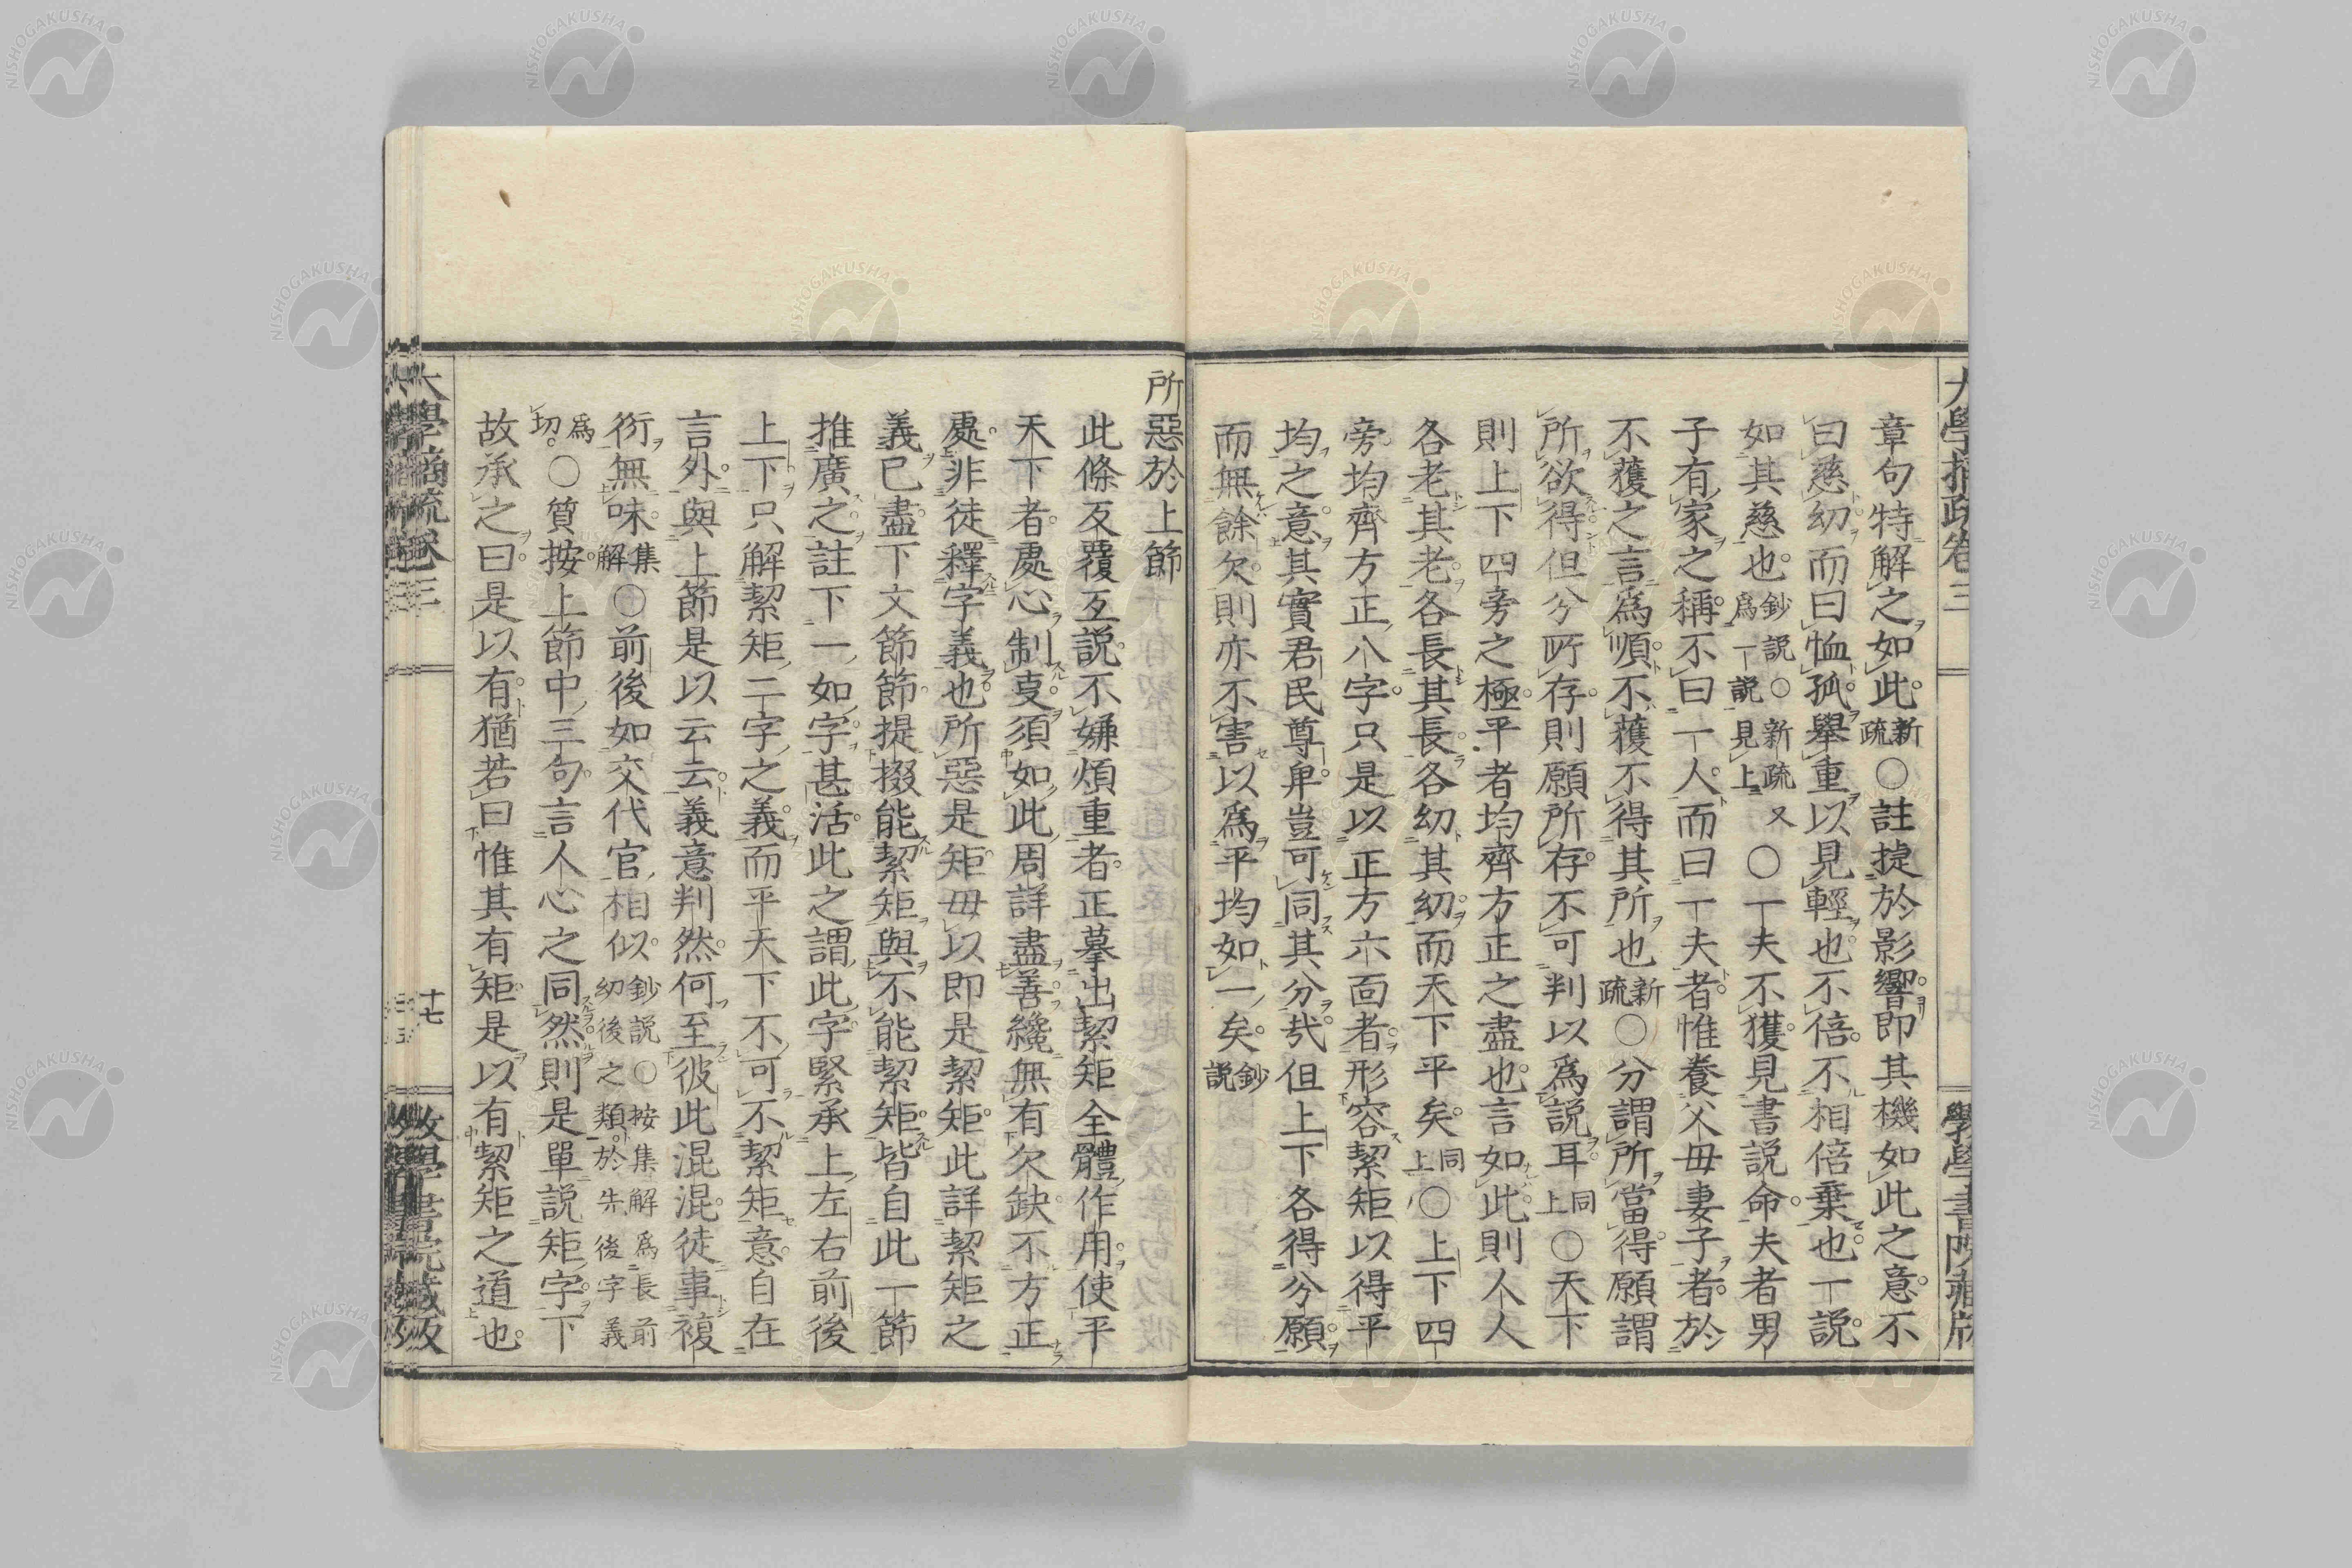 章句特解之如此新疏〇註捷於影響即其機如此之意不
曰慈幼而曰恤孤舉重以見輕也不倍不相倍棄也一說
如其慈也鈔說爲一說〇新疏又見上〇一夫不獲見書說命夫者男
子有家之稱不曰一人而曰一夫者惟養父母妻子者於
不獲之言爲順不獲不得其所也新疏〇分謂所當得願謂
所欲得但分所存則願所存不可判以爲說耳同上〇天下
則上下四旁之極平者均齊方正之盡也言如此則人人
各老其老各長其長各幼其幼而天下平矣同上〇上下四
旁均齊方正八字只是以正方六面者形容絜矩以得平
均之意其實君民尊卑豈可同其分哉但上下各得分願
而無餘欠則亦不害以爲平均如一矣鈔說
所惡於上節
此條反覆互說不嫌煩重者正摹出絜矩全體作用使平
天下者處心制叓須如此周詳盡善纔無有欠缺不方正
處非徒釋字義也所惡是矩毋以即是絜矩此詳絜矩之
義已盡下文節節提掇能絜矩與不能絜矩皆自此一節
推廣之註下一如字甚活此之謂此字緊承上左右前後
上下只解絜矩二字之義而平天下不可不絜矩意自在
言外與上節是以云云義意判然何至彼此混混徒事複
衍無味集解〇前後如交代官相似鈔說〇按集解爲長前幼後之類於先後字義
爲切〇質按上節中三句言人心之同然則是單說矩字下
故承之曰是以有猶若曰惟其有矩是以有絜矩之道也
大學摘疏卷三
十七
斅學書院藏版
NISHOGAKUSHA